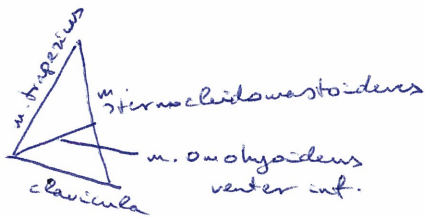 m. trapezius
m.
sternocleidomastoideus
m. omohyoideus
venter inf.
clavicula